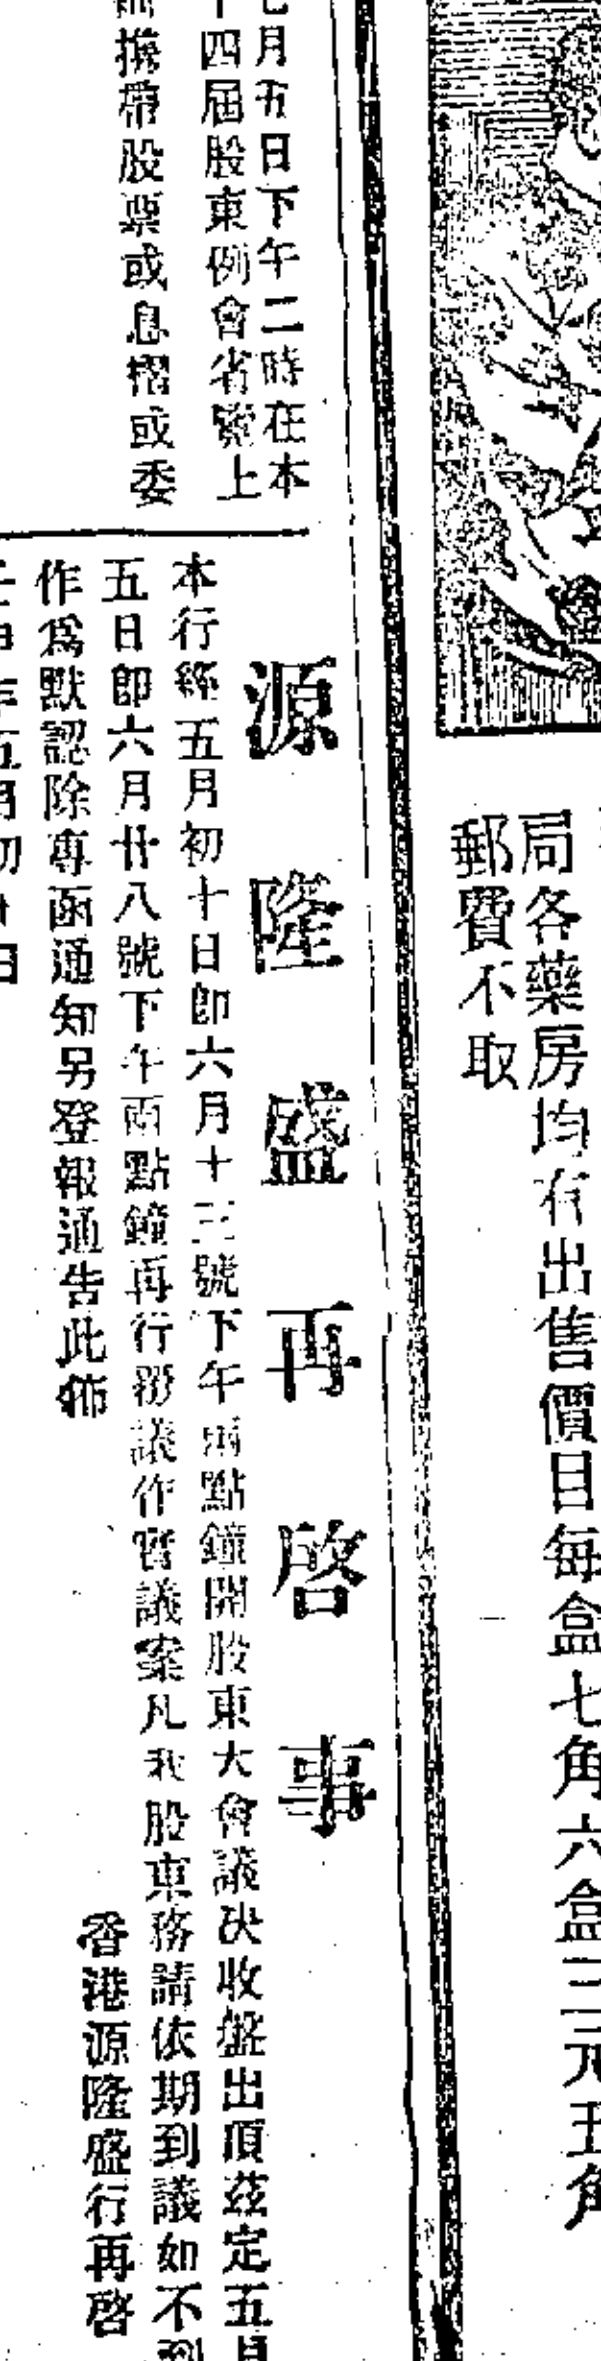 局各藥房均有出售價目每盒七角六盒三元五角
郵費不取
月五日下午二時在本
四屆股東例會省覽上
攜帶股票或息摺或委
源隆盛再啓事
本行經五月初十日即六月十三號下午兩點鐘開股東大會議决收盤出頂茲定五月
五日即六月廿八號下午兩點鐘再行複議作實議案凡我股東務請依期到議如不到
作爲默認除專函通知另登報通告此佈
香港源隆盛行再啓
壬申年五月初十日